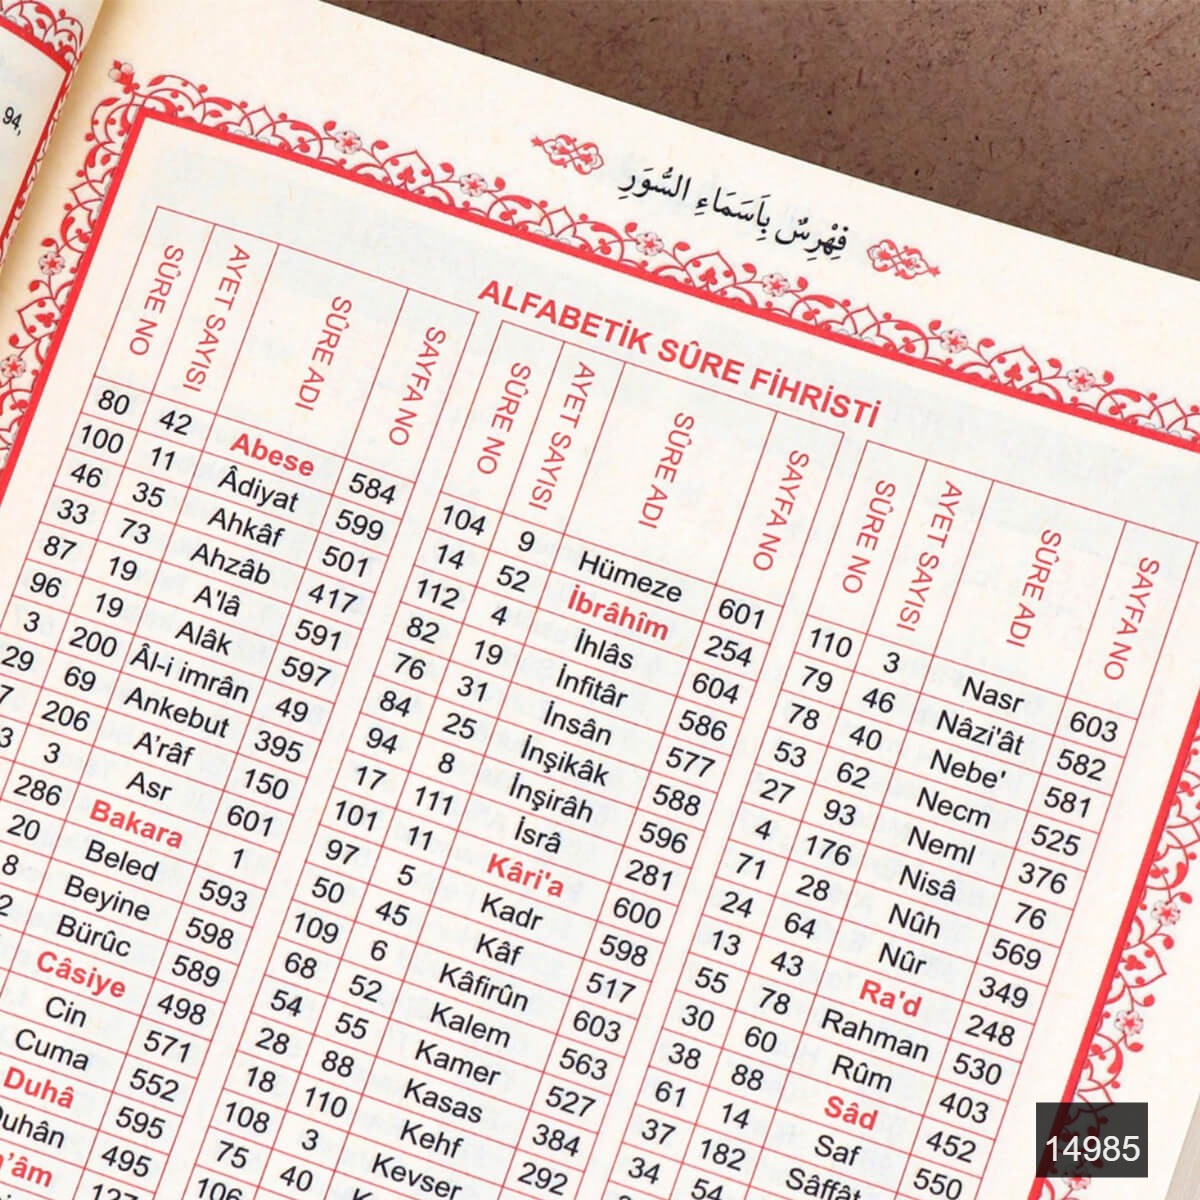 94,
فِهْرِسٌ بِاَسَمَاءِ السُّوَرِ
ALFABETİK SÛRE FİHRİSTİ
SÛRE NO AYET SAYISI SÛRE ADI SAYFA NO
80 42 Abese 584
100 11 Âdiyat 599
46 35 Ahkâf 501
33 73 Ahzâb 417
87 19 A'lâ 591
96 19 Alâk 597
3 200 Âl-i imrân 49
29 69 Ankebut 395
7 206 A'râf 150
3 3 Asr 601
286 Bakara 1
20 Beled 593
8 Beyine 598
2 Bürûc 589
Câsiye 498
Cin 571
Cuma 552
Duhâ 595
uhân 495
'âm
SÛRE NO AYET SAYISI SÛRE ADI SAYFA NO
104 9 Hümeze 601
14 52 İbrâhîm 254
112 4 İhlâs 604
82 19 İnfitâr 586
76 31 İnsân 577
84 25 İnşikâk 588
94 8 İnşirâh 596
17 111 İsrâ 281
101 11 Kâri'a 600
97 5 Kadr 598
50 45 Kâf 517
109 6 Kâfirûn 603
68 52 Kalem 563
54 55 Kamer 527
28 88 Kasas 384
18 110 Kehf 292
108 3 Kevser
75 40
106
SÛRE NO AYET SAYISI SÛRE ADI SAYFA NO
110 3 Nasr 603
79 46 Nâzi'ât 582
78 40 Nebe' 581
53 62 Necm 525
27 93 Neml 376
4 176 Nisâ 76
71 28 Nûh 569
24 64 Nûr 349
13 43 Ra'd 248
55 78 Rahman 530
30 60 Rûm 403
38 88 Sâd 452
61 14 Saf 550
37 182 Sâffât
34 54
14985